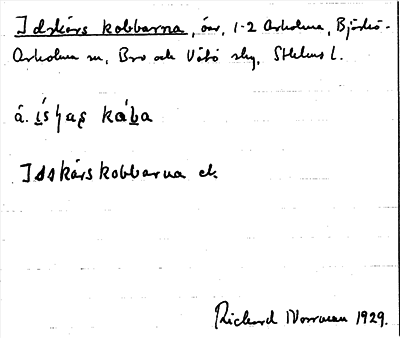 Idskärs kobbarna, öar, 1-2 Arholma, Björkö-
Arholma sn, Bro och Vätö skg, Sthlms l.
á. ís ꞎaṣ kába
Idskärskobbarna ek.
Rickard Norrman 1929.